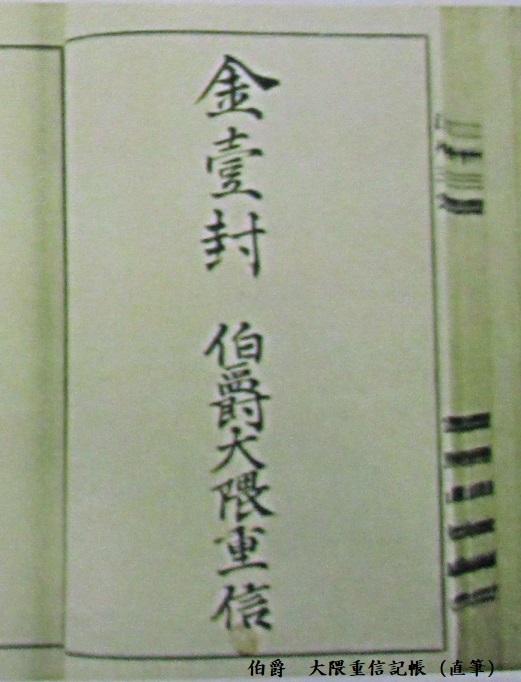 金壹封　伯爵大隈重信
伯爵　大隈重信記帳（直筆）